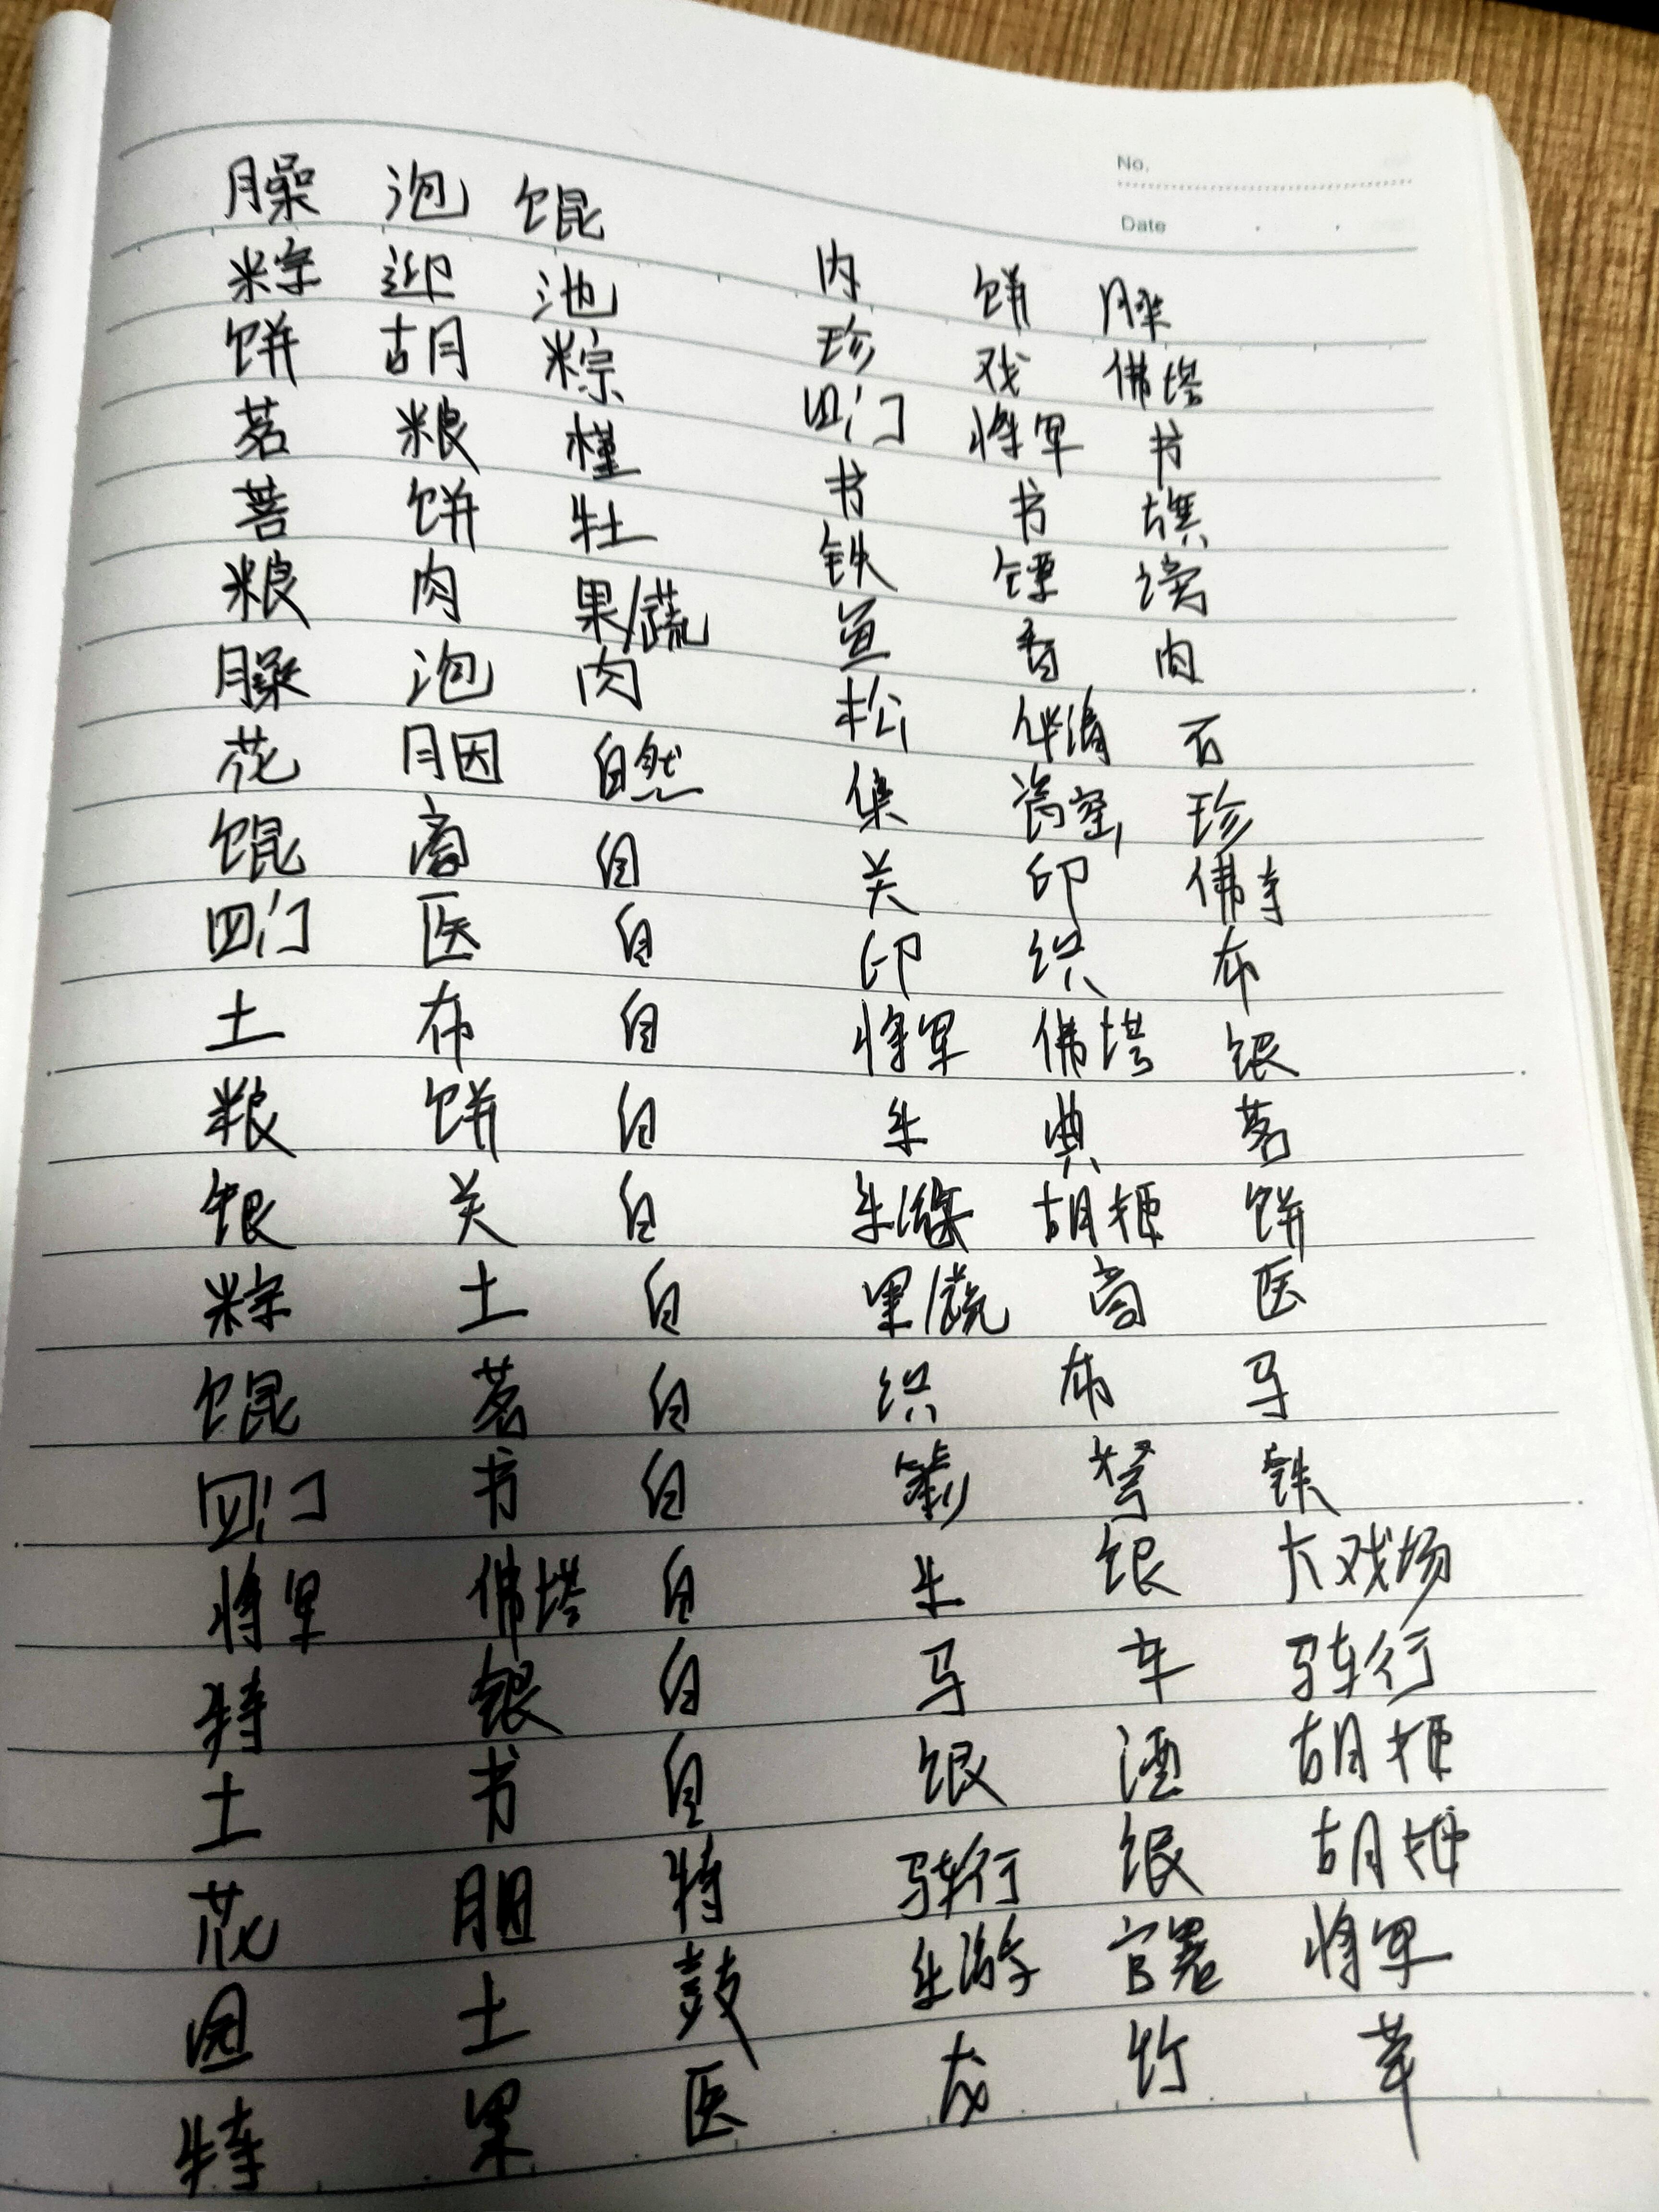 No.
Date
臊 泡 馄
粽 迎 池
饼 胡 粽
茗 粮 槿
菩 饼 牡
粮 肉 果/蔬
臊 泡 肉
花 胭 自然
馄 斋 自
四门 医 自
土 布 自
粮 饼 自
银 关 自
粽 土 自
馄 茗 自
四门 书 自
将军 佛塔 自
特 银 自
土 书 自
花 胭 特
园 土 鼓
特 果 医
肉 饼 臊
珍 戏 佛塔
四门 将军 书
书 书
铁 镖
鱼 香 肉
松 伴清 石
集 瓷窑 珍
关 印 佛寺
印 织 布
将军 佛塔 银
牛 典 茗
胡梗 饼
果/蔬 斋 医
织 布 马
弩 铁
牛 银 大戏场
马 车 骑车行
银 酒 胡梗
银
官署 将军
龙 竹